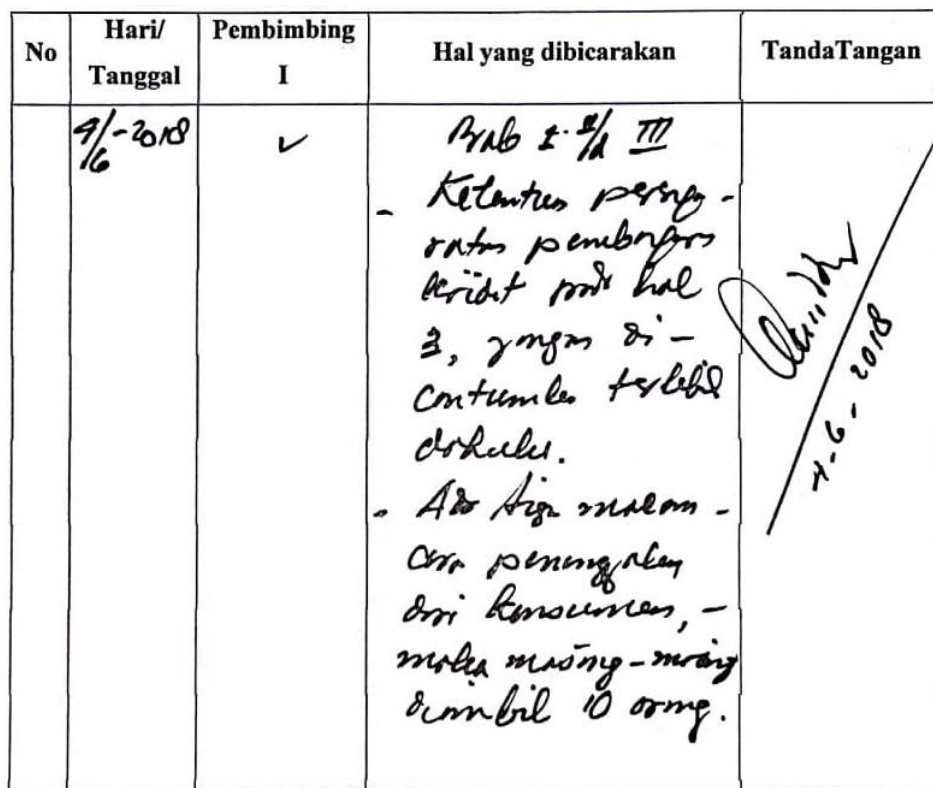 No
Hari/
Tanggal
Pembimbing
I
Hal yang dibicarakan
TandaTangan
4/6-2018
✓
Bab I s/d III
- Ketentuan
pembayaran
kredit pada hal
3, jangan di-
cantumkan terlebih
dahulu.
- Ada tiga macam -
cara penunggakan
dari konsumen, -
maka masing-masing
diambil 10 orang.
4-6-2018